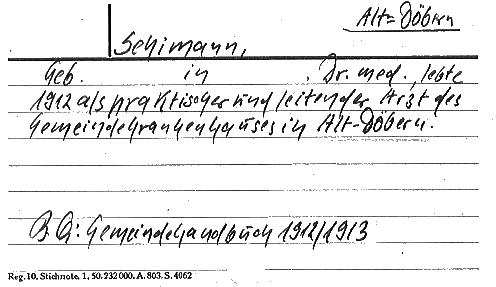 Alt-Döbern
Schimann,
Geb. in , Dr. med., lebte
1912 als praktischer und leitender Arzt des
Gemeindekrankenhauses in Alt-Döbern.
B.Qi: Gemeindehandbuch 1912/1913
Reg.10. Stichnote. 1, 50. 232000. A. 803. S. 4062